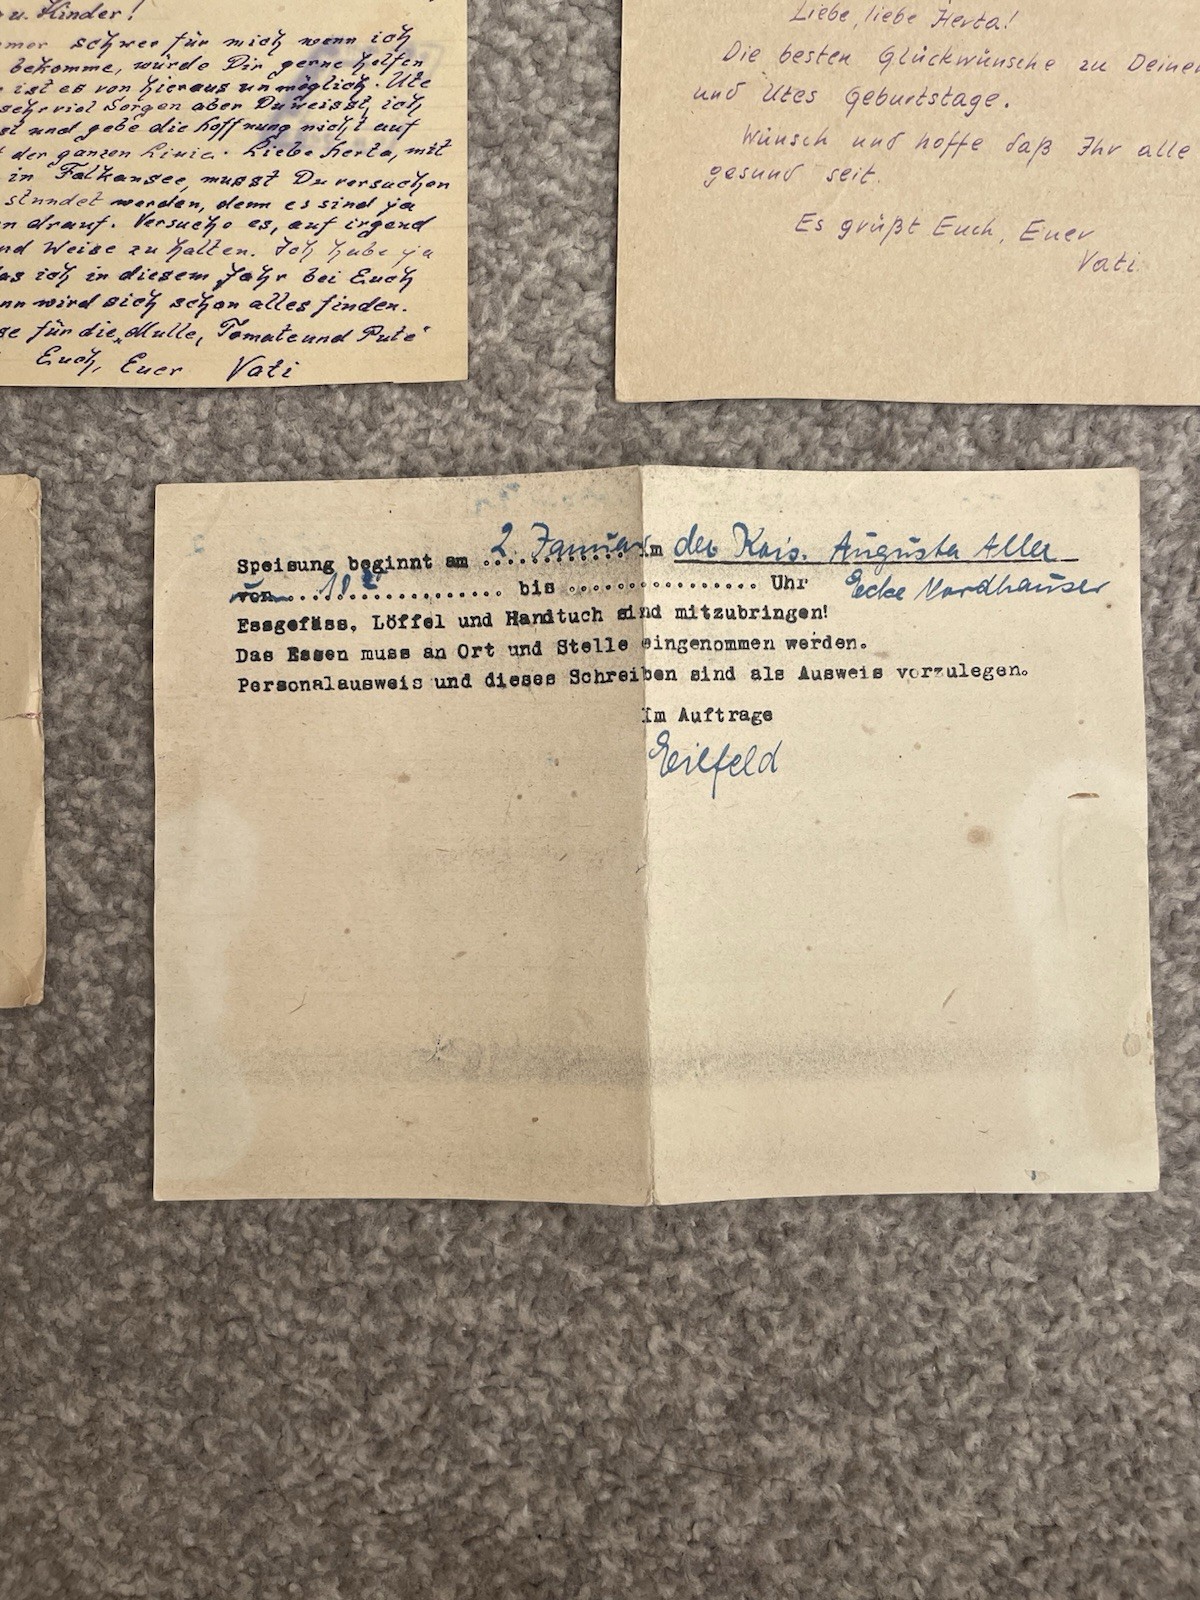 u. Kinder!
schwer für mich wenn ich
bekomme, würde Dir gerne helfen
ist es von hieraus unmöglich. Ute
sehr viel Sorgen aber Du weisst, ich
und gebe die Hoffnung nicht auf
der ganzen Linie. Liebe Herta, mit
in Falkensee, musst Du versuchen
stundet werden, denn es sind ja
drauf. Versuche es, auf irgend
nd Weise zu halten. Ich habe ja
as ich in diesem Jahr bei Euch
nn wird sich schon alles finden.
für die „Mulle, Tomate und Pute"
Euch, Euer Vati
Liebe, liebe Herta!
Die besten Glückwünsche zu Deinem
und Utes Geburtstage.
Wünsch und hoffe daß Ihr alle
gesund seit.
Es grüßt Euch, Euer
Vati
Speisung beginnt am 2. Januar im der Kais. Augusta Allee
von .................... bis ................ Uhr Ecke Nordhauser
Essgefäss, Löffel und Handtuch sind mitzubringen!
Das Essen muss an Ort und Stelle eingenommen werden.
Personalausweis und dieses Schreiben sind als Ausweis vorzulegen.
Im Auftrage
Eilfeld